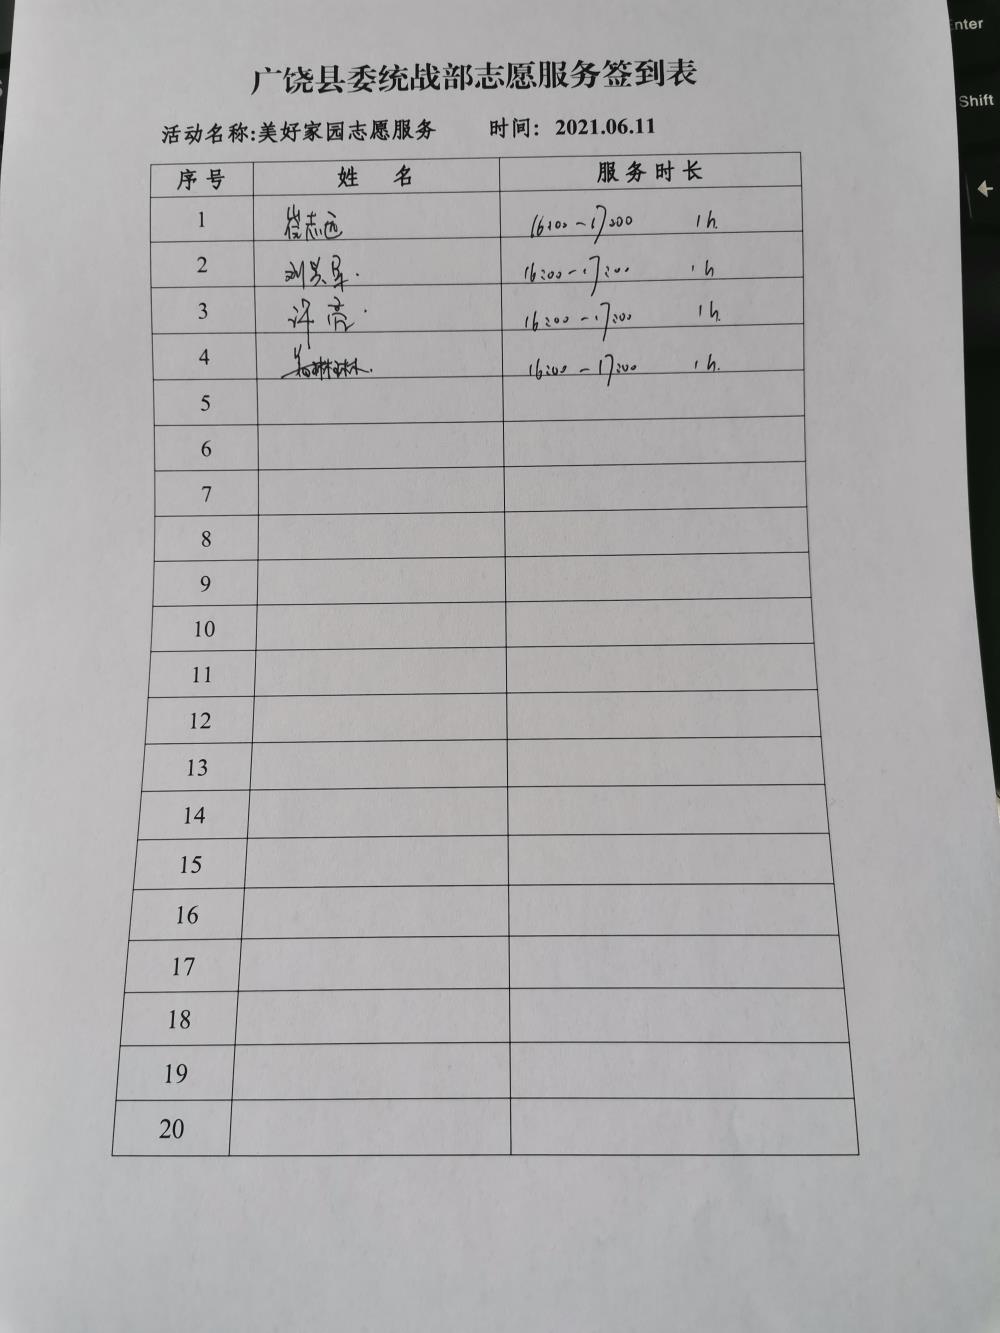 广饶县委统战部志愿服务签到表
活动名称:美好家园志愿服务 时间: 2021.06.11
序号 姓 名 服务时长
1 志远 16:00-17:00 1h.
2 刘 16:00-17:00 1h
3 许亮 16:00-17:00 1h.
4 16:00-17:00 1h.
5
6
7
8
9
10
11
12
13
14
15
16
17
18
19
20
Enter
Shift